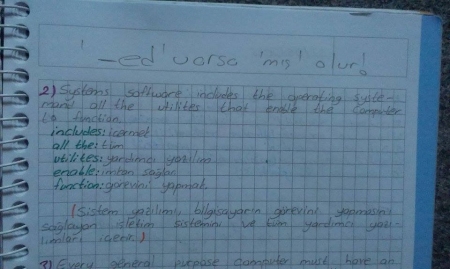 '_ed' varsa 'mış' olur!
2) Systems software includes the operating syste-
mand all the utilites that enable the computer
to function.
includes: içermek
all the: tüm
utilites: yardımcı yazılım
enable: imkan sağlar
function: görevini yapmak.
(Sistem yazılımı, bilgisayarın görevini yapmasını
sağlayan işletim sistemini ve tüm yardımcı yazı-
lımları içerir.)
3) Every general purpose computer must have an